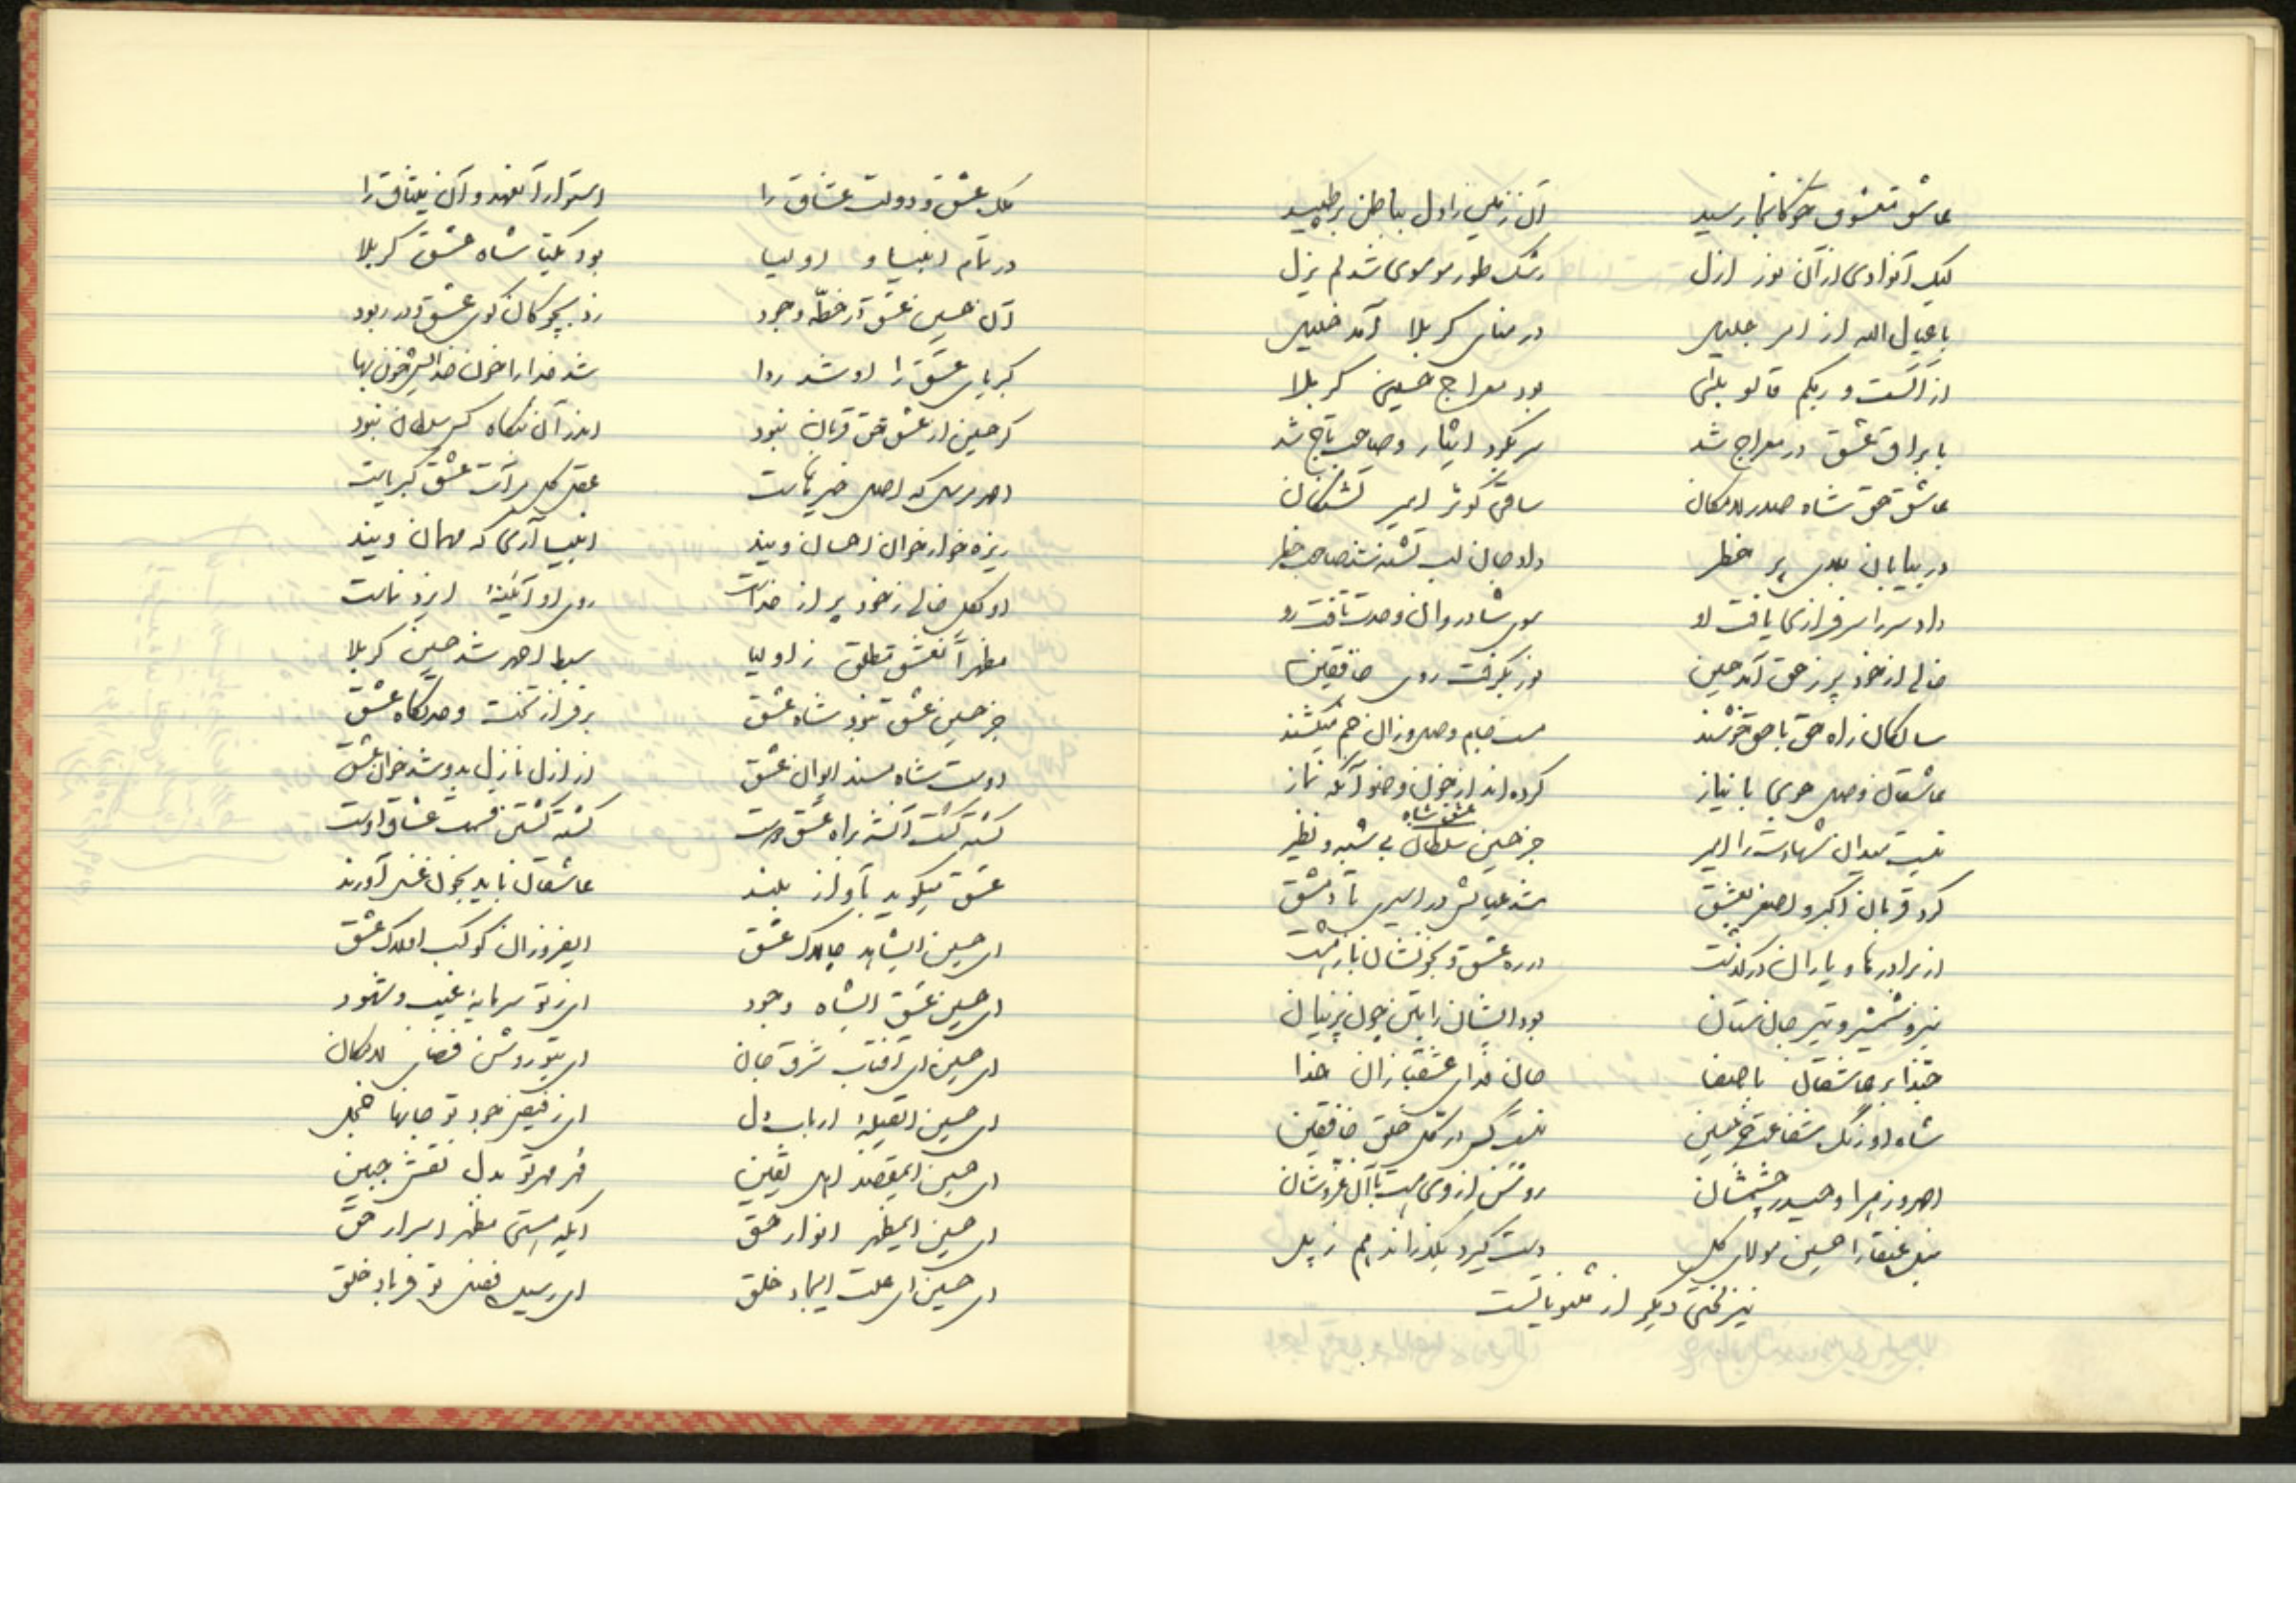 عاشق و معشوق چون آنجا رسید آن زمین را دل بباطن برطپید
لیک آنوادی از آن نور ازل رشک طور موسوی شد لم یزل
با عیال الله از امر جلیل در منای کربلا آمد خلیل
از الست و ربکم قالو بلی بود معراج حسین کربلا
با براق عشق در معراج شد سر بکرد ایثار و صاحب تاج شد
عاشق حق شاه صدر لامکان ساقی کوثر امیر تشنگان
در بیابان بلای پر خطر داد جان لب تشنه شد صاحب نظر
داد سر را سرفرازی یافت او سوی شادروان وحدت تافت رو
خالی از خود پر ز حق آمد حسین نور بگرفت روی خافقین
سالکان راه حق با حق خوشند مست جام وصل و زان خم میکشند
عاشقان وصل هو بی با نیاز کرده اند از خون وضو آنگه نماز
نیست میدان شهادت را امیر جز حسین سلطان عشق شاه بی شبه و نظیر
کرد قربان اکبر و اصغر بعشق شد عیالش در اسیری تا دمشق
از برادرها و یاران درگذشت در ره عشق و بخونشان بازگشت
نیزه و شمشیر و تیر جان ستان بود ایشان را بتن چون پرنیان
حبذا بر عاشقان با صفا جان فدای عشقبازان خدا
شاه اورنگ شفاعت جز حسین نیست کس در کل خلق خافقین
احمد و زهرا و حیدر چشمشان روشن از وی هست با آل عزوشان
مثل عنقا را حسین مولای کل دست گیرد بگذراند هم ز پل
نیز لختی دیگر از مثنویاتست
ملک عشق و دولت عشاق را استوار آنعهد و آن میثاق را
در تمام انبیا و اولیا بود یکتا شاه عشق کربلا
آن حسین عشق در خطه وجود زد بچوگان گوی عشق و در ربود
کبریای عشق را او شد روا شد خدا را خون خدایش خونبها
گر حسین از عشق حق قربان نبود اندر آن بنگاه کس سلطان نبود
احمد مرسل که اصل خیرهاست عقل کل مرآت عشق کبریاست
ریزه خوار خوان احسان ویند انبیا آری که مهمان ویند
او بکل خالی ز خود پر از خداست روی او آئینهٔ ایزد نماست
مظهر عشق مطلق ز اولیا سبط احمد شد حسین کربلا
جز حسین عشق نبود شاه عشق بر فراز تخت وحدتگاه عشق
اوست شاه مسند ایوان عشق از ازل نازل بدو شد خوان عشق
کشته گشت آنشه براه عشق دوست کشته گشتن قسمت عشاق اوست
عشق میگوید بآواز بلند عاشقان باید بخون غسل آورند
ای حسین ایشاهد چالاک عشق ایفروزان کوکب افلاک عشق
ای حسین عشق ایشاه وجود ای ز تو سرمایهٔ غیب و شهود
ای حسین ای آفتاب شرق جان ای بتو روشن فضای لامکان
ای حسین ایقبلهٔ ارباب دل ای ز فیض جود تو جانها خجل
ای حسین ایمقصد اهل یقین مهر مهر تو بدل نقش جبین
ای حسین ایمظهر انوار حق ایکه هستی مظهر اسرار حق
ای حسین ای علت ایجاد خلق ای رسیده فضل تو فریاد خلق